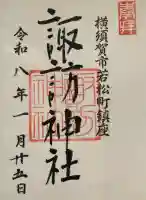 横須賀市若松町鎮座
諏訪神社
令和八年一月廿五日